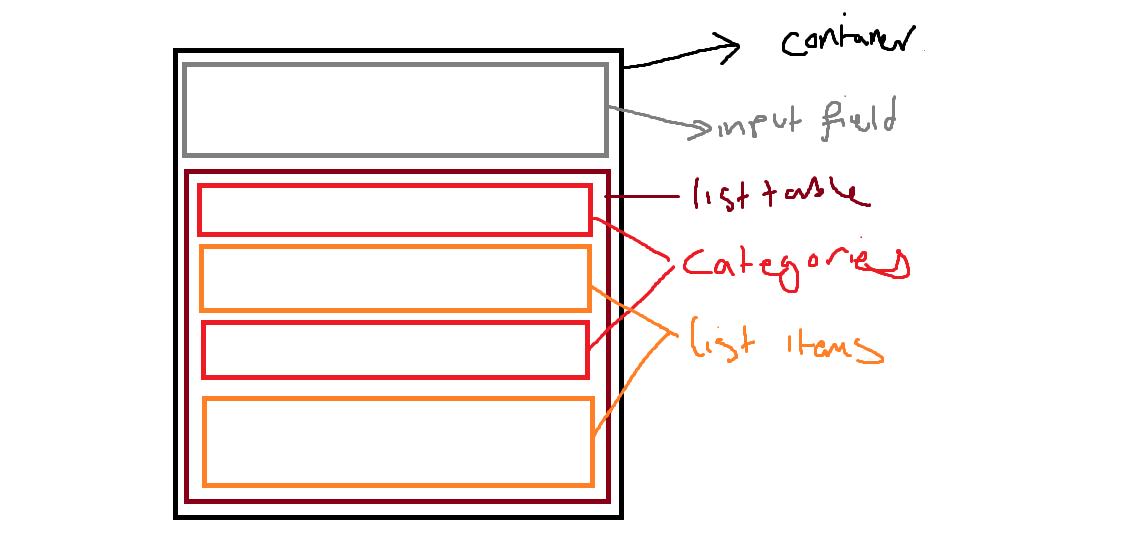 container
input field
list table
Categories
list items